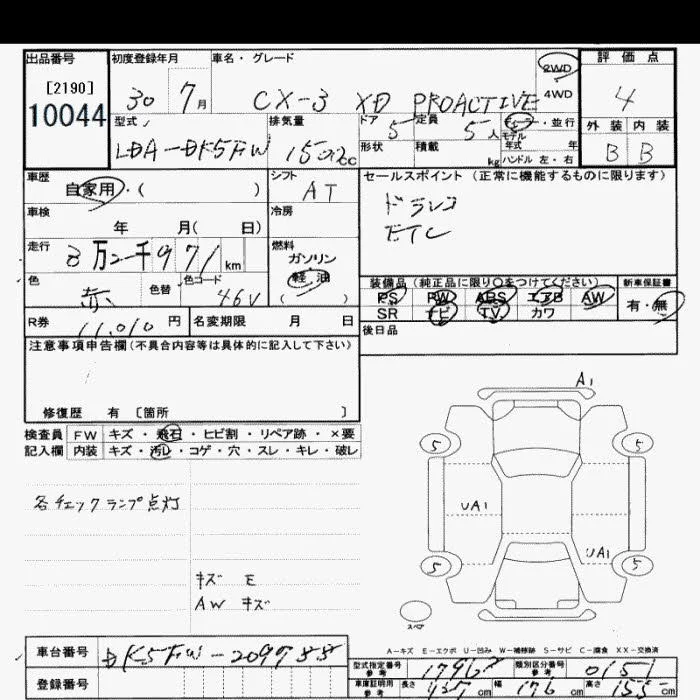 出品番号 初度登録年月 車名・グレード 2WD 評価点
[2190] 30 7月 CX-3 XD PROACTIVE 4WD 4
10044 型式 排気量 ドア 定員 ・並行 外装 内装
LDA-DK5FW cc 5 5人 モデル年式 年 B B
形状 積載 kg ハンドル 左・右
車歴 シフト セールスポイント (正常に機能するものに限ります)
自家用・( ) AT ドラレコ
車検 冷房 ETC
年 月( 日)
走行 燃料
8万二千971km ガソリン
色 色替 色コード 軽油 装備品 (純正品に限り○をつけてください) 新車保証書
赤 46V ( ) PS PW ABS エアB AW 有・無
SR ナビ TV カワ
R券 11,010円 名変期限 月 日 後日品
注意事項申告欄(不具合内容等は具体的に記入して下さい)
修復歴 有 [箇所 ]
検査員 FW キズ・飛石・ヒビ割・リペア跡・×要
記入欄 内装 キズ・汚レ・コゲ・穴・スレ・キレ・破レ
各チェックランプ点灯
キズ E
AW キズ
A1
5 5
UA1
UA1
5 5
スペア
A-キズ E-エクボ U-凹み W-補修跡 S-サビ C-腐食 XX-交換済
車台番号 DK5FW-209788
登録番号
型式指定番号 参考 類別区分番号 参考
車庫証明用 参考 長さ cm 幅 176 cm 高さ 155 cm